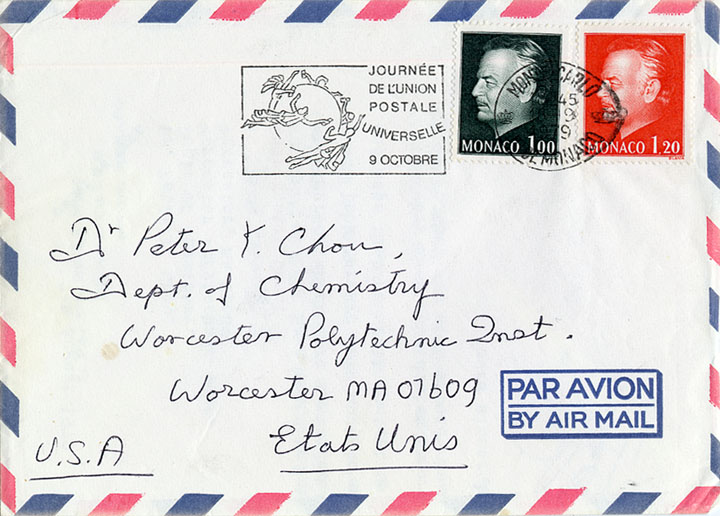 JOURNÉE
DE L'UNION
POSTALE
UNIVERSELLE
9 OCTOBRE
MONACO 1.00
MONACO 1.20
MONTE-CARLO
45
9
19
DE MONACO
Dr Peter Y. Chou,
Dept. of Chemistry
Worcester Polytechnic Inst.
Worcester MA 01609
Etats Unis
U.S.A
PAR AVION
BY AIR MAIL